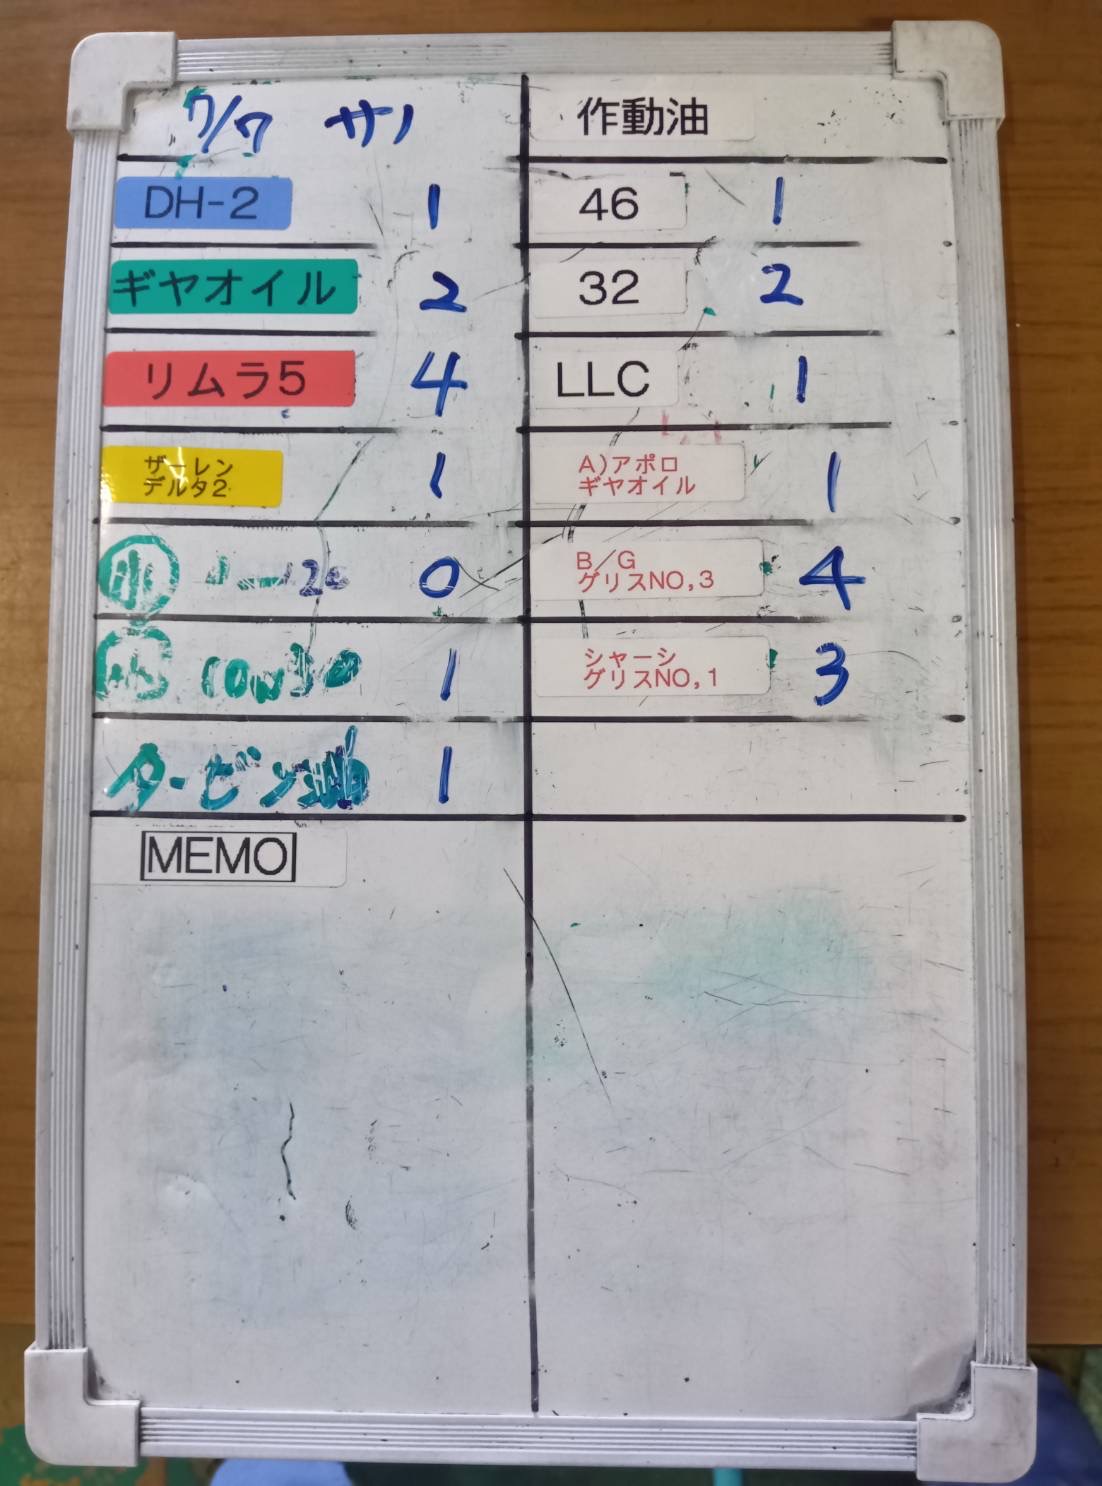 7/7 サノ
DH-2 1
ギヤオイル 2
リムラ5 4
ザーレン
デルタ2 1
0
10W30 1
タービン油 1
MEMO
作動油
46 1
32 2
LLC 1
A)アポロ
ギヤオイル 1
B/G
グリスNO,3 4
シャーシ
グリスNO,1 3